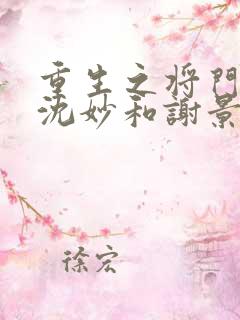 重生之将門
沈妙和謝景
徐宏